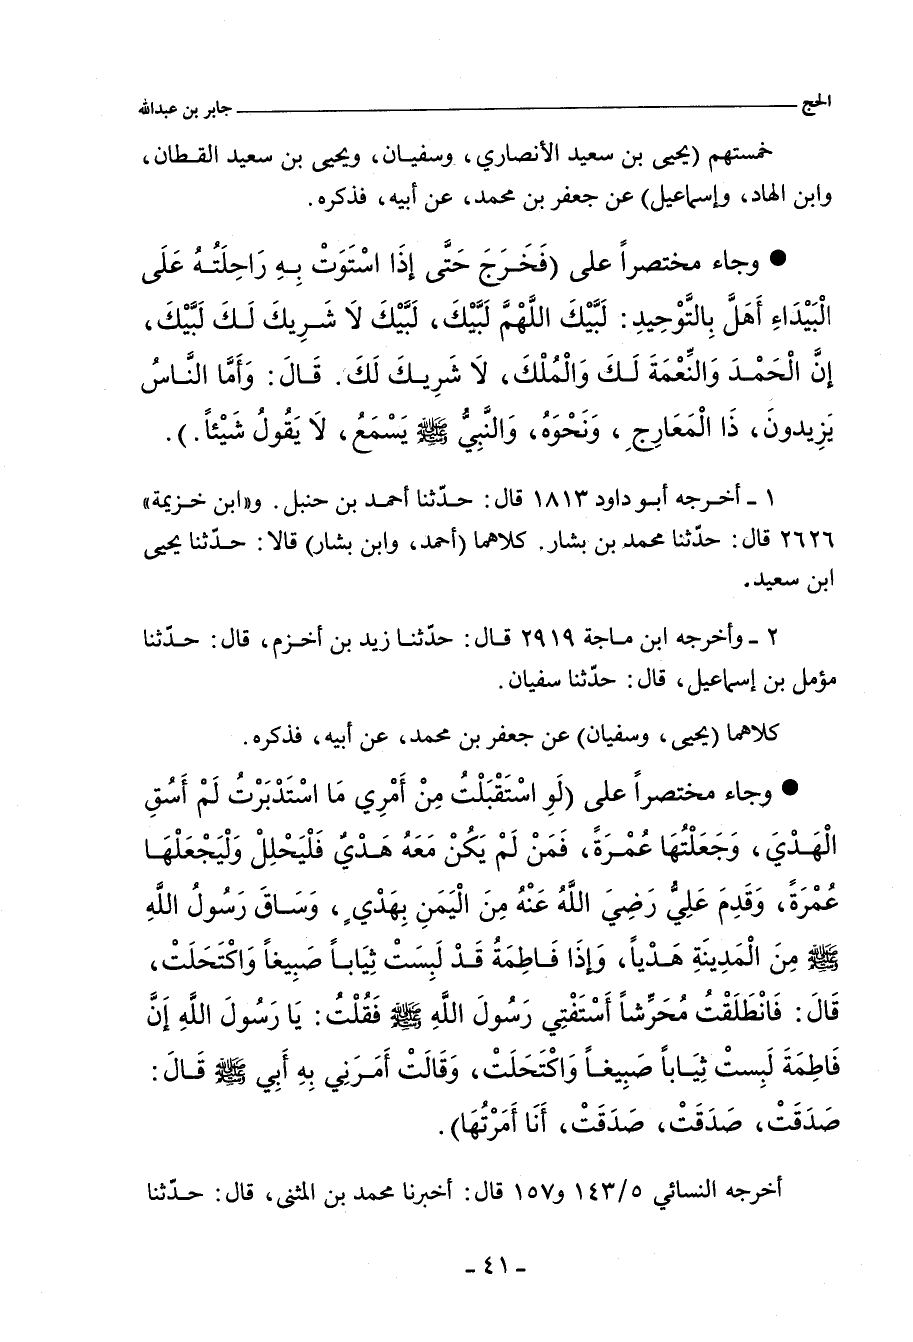 الحج ــــــــــــــــــــــــــــــــ جابر بن عبدالله
خمستهم (يحيى بن سعيد الأنصاري، وسفيـان، ويحيى بن سعيد القـطان،
وابن الهاد، وإسماعيل) عن جعفر بن محمد، عن أبيه، فذكره.
● وجاء مختصراً على (فَخَـرَجَ حَتَّى إِذَا اسْتَوَتْ بِـهِ رَاحِلَتُـهُ عَلَى
الْبَيْدَاءِ أَهَلَّ بِالتَّوْحِيدِ: لَبَّيْكَ اللَّهُمَّ لَبَّيْكَ، لَبَّيْكَ لَا شَـرِيكَ لَـكَ لَبَّيْكَ،
إِنَّ الْحَمْـدَ وَالنِّعْمَةَ لَـكَ وَالْمُلْكَ، لَا شَرِيـكَ لَكَ. قَـالَ: وَأَمَّا النَّاسُ
يَزِيدونَ، ذَا الْمَعَارِجِ، وَنَحْوَهُ، وَالنَّبِيُّ ﷺ يَسْمَعُ، لَا يَقُولُ شَيْئاً.).
١ ـ أخـرجه أبـو داود ١٨١٣ قال: حـدّثنا أحمـد بن حنبل. و«ابن خـزيمة»
٢٦٢٦ قال: حدّثنا محمد بن بشار. كلاهما (أحمد، وابن بشار) قالا: حـدّثنا يحيى
ابن سعيد.
٢ ـ وأخرجه ابن مـاجة ٢٩١٩ قـال: حدّثنـا زيد بن أخـزم، قال: حـدّثنا
مؤمل بن إسماعيل، قال: حدّثنا سفيان.
كلاهما (يحيى، وسفيان) عن جعفر بن محمد، عن أبيه، فذكره.
● وجاء مختصراً على (لَوِ اسْتَقْبَلْتُ مِنْ أَمْرِي مَا اسْتَدْبَرْتُ لَمْ أَسُقِ
الْهَـدْيَ، وَجَعَلْتُهَا عُمْـرَةً، فَمَنْ لَمْ يَكُنْ مَعَهُ هَـدْيٌ فَلْيَحْلِلْ وَلْيَجْعَلْهَـا
عُمْرَةً، وَقَدِمَ عَلِيٌّ رَضِيَ اللَّهُ عَنْهُ مِنَ الْيَمَنِ بِهَدْيٍ، وَسَـاقَ رَسُولُ اللَّهِ
ﷺ مِنَ الْمَدِينَةِ هَـدْياً، وَإِذَا فَـاطِمَةُ قَـدْ لَبِسَتْ ثِيَابـاً صَبِيغاً وَاكْتَحَلَتْ،
قَالَ: فَانْطَلَقْتُ مُحَرِّشاً أَسْتَفْتِي رَسُولَ اللَّهِ ﷺ فَقُلْتُ: يَا رَسُولَ اللَّهِ إِنَّ
فَاطِمَةَ لَبِسَتْ ثِيَـاباً صَبِيغـاً وَاكْتَحَلَتْ، وَقَالَتْ أَمَـرَنِي بِهِ أَبِي ﷺ قَـالَ:
صَدَقَتْ، صَدَقَتْ، صَدَقَتْ، أَنَا أَمَرْتُهَا).
أخرجه النسائي ١٤٣/٥ و١٥٧ قال: أخبرنا محمد بن المثنى، قال: حـدّثنا
ـ ٤١ ـ